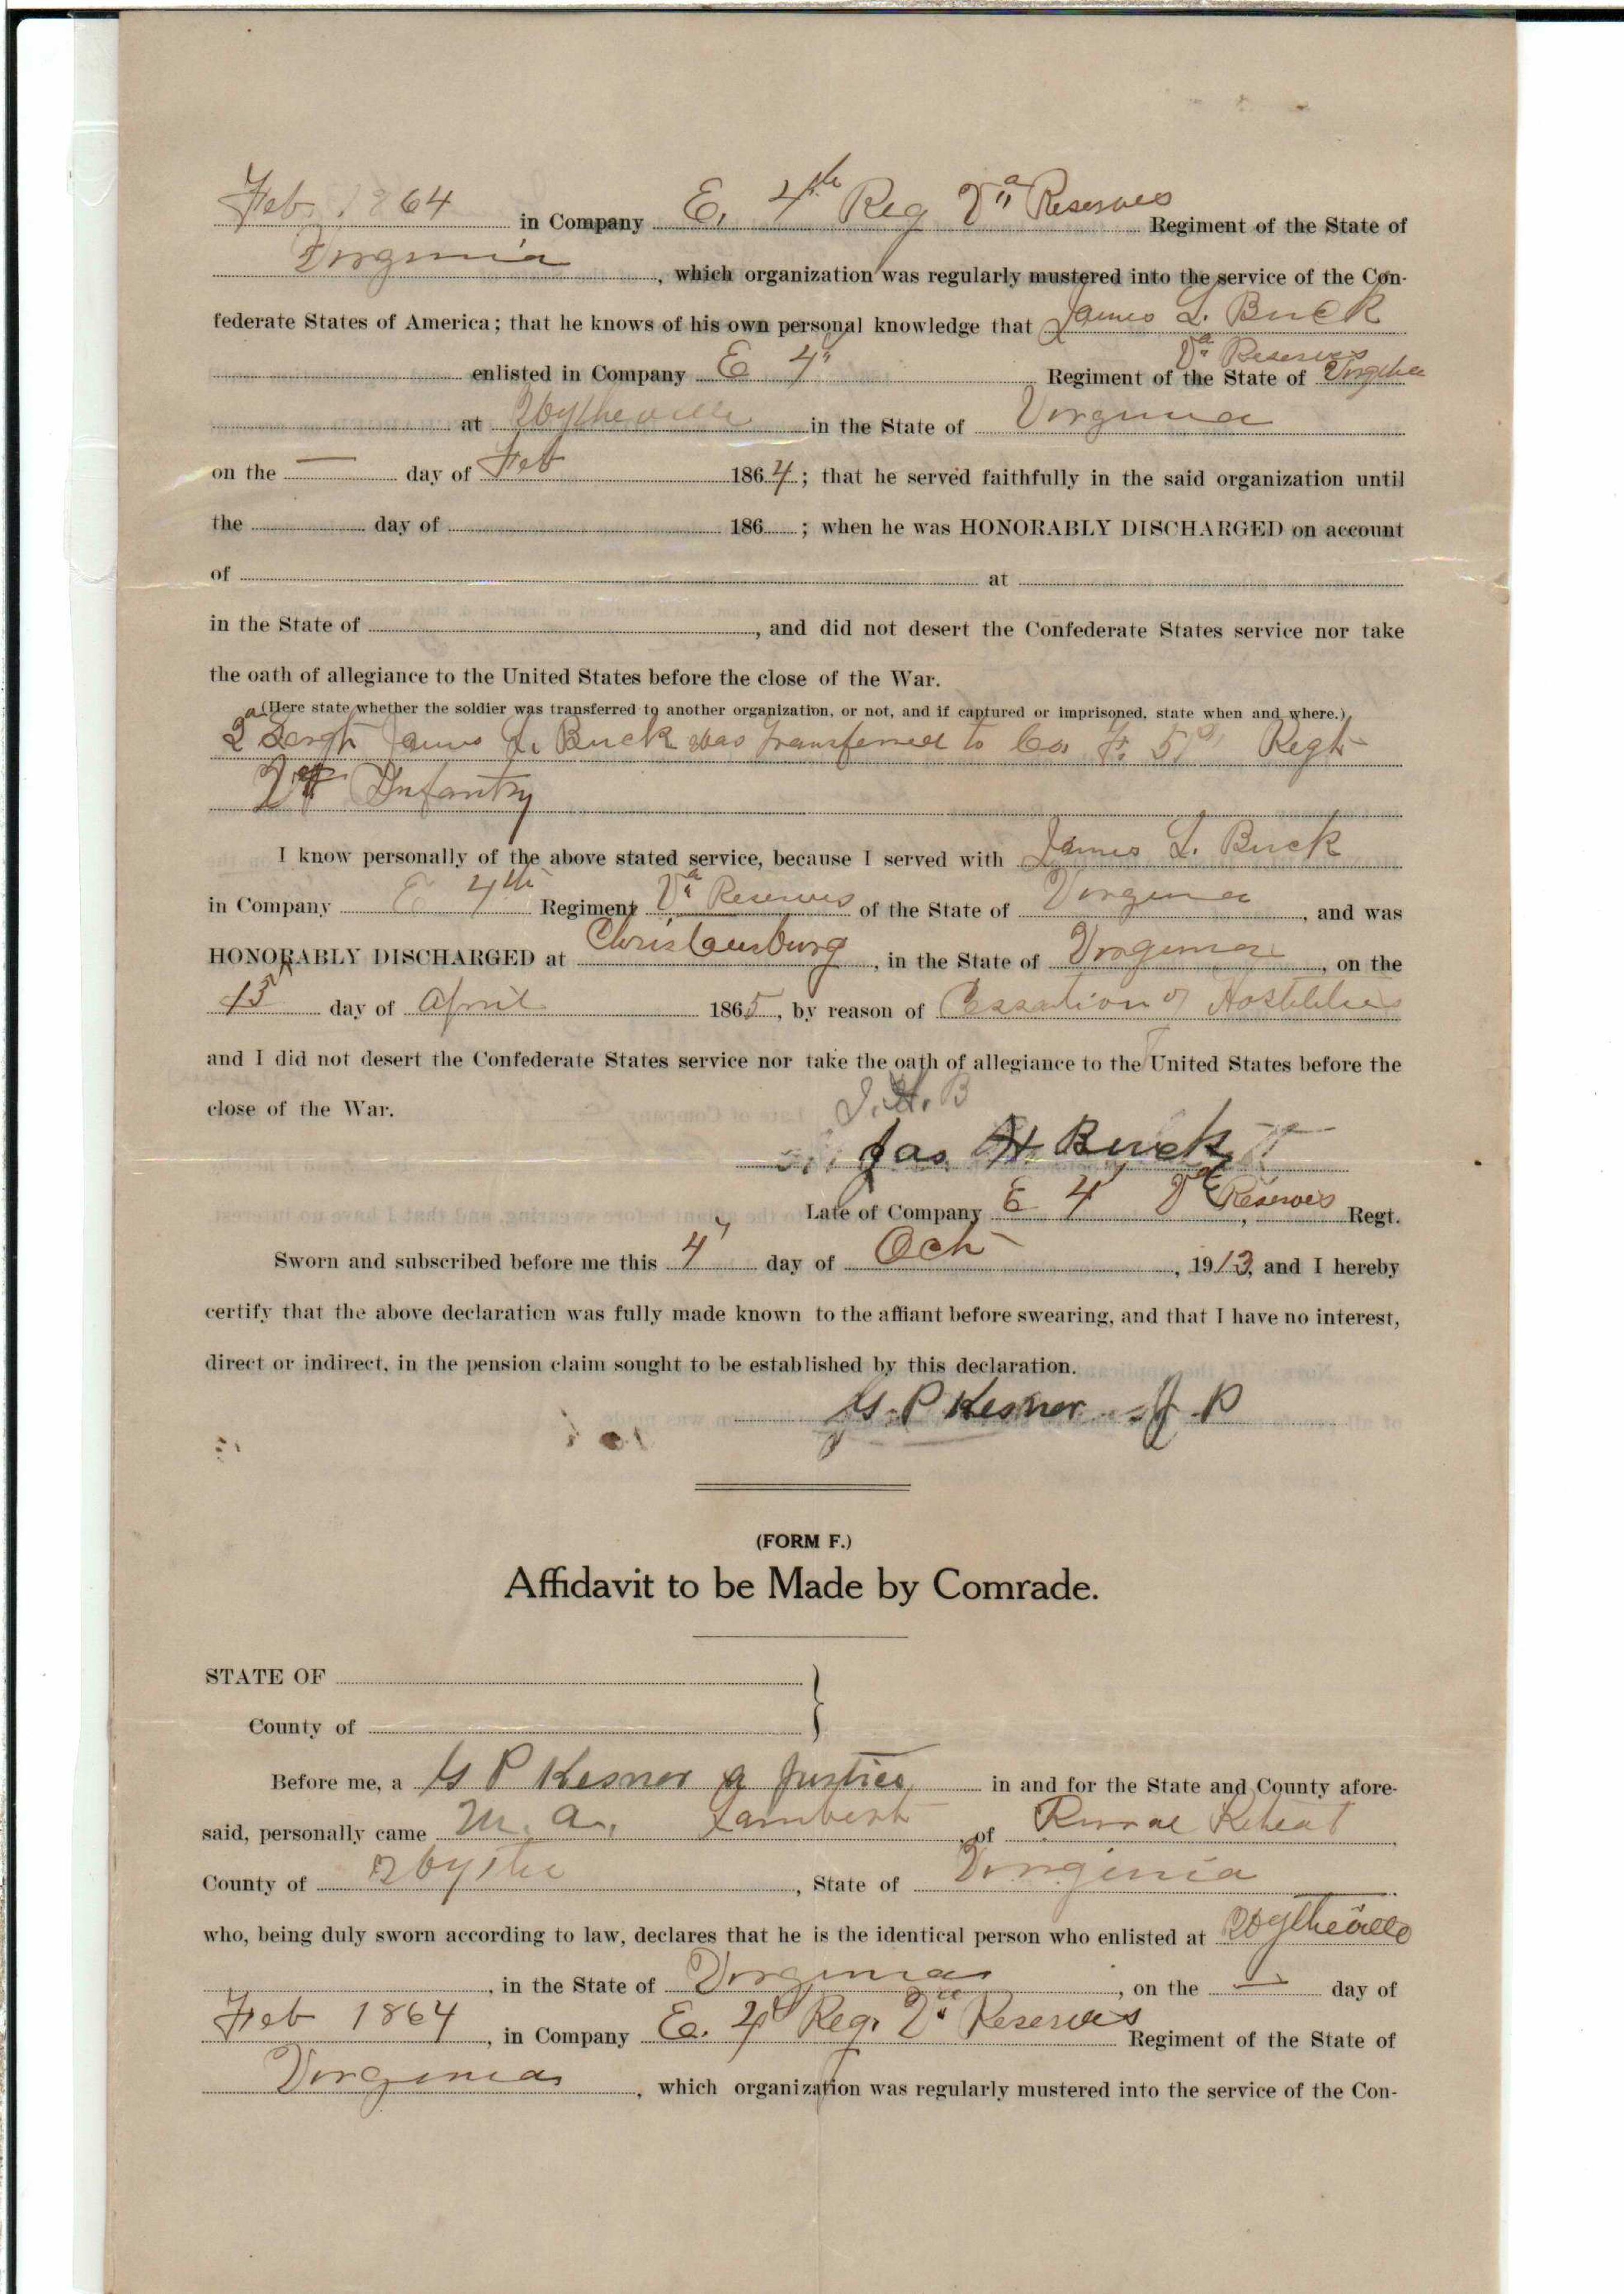 Feb 1864 in Company E. 4th Reg Va Reserves Regiment of the State of
Virginia, which organization was regularly mustered into the service of the Con-
federate States of America; that he knows of his own personal knowledge that James L. Buck
Va Reserves
enlisted in Company E 4" Regiment of the State of Virginia
at Wytheville in the State of Virginia
on the — day of Feb 1864; that he served faithfully in the said organization until
the day of 186 ; when he was HONORABLY DISCHARGED on account
of at
in the State of , and did not desert the Confederate States service nor take
the oath of allegiance to the United States before the close of the War.
(Here state whether the soldier was transferred to another organization, or not, and if captured or imprisoned, state when and where.)
2 Sergt James L. Buck was transferred to Co. F. 51 Regt
Va Infantry
I know personally of the above stated service, because I served with James L. Buck
in Company E 4th Regiment Va Reserves of the State of Virginia, and was
HONORABLY DISCHARGED at Christansburg, in the State of Virginia, on the
15 day of April 1865, by reason of Cessation of Hostilities
and I did not desert the Confederate States service nor take the oath of allegiance to the United States before the
close of the War.
J. H. B
Jas H. Buck
Late of Company E 4 Va Reserves Regt.
Sworn and subscribed before me this 4" day of Oct, 1913, and I hereby
certify that the above declaration was fully made known to the affiant before swearing, and that I have no interest,
direct or indirect, in the pension claim sought to be established by this declaration.
G. P Kesner J. P
(FORM F.)
Affidavit to be Made by Comrade.
STATE OF
County of
Before me, a G P Kesner a Justice in and for the State and County afore-
said, personally came M. A. Lambert, of Rural Retreat
County of Wythe, State of Virginia
who, being duly sworn according to law, declares that he is the identical person who enlisted at Wytheville
, in the State of Virginia, on the — day of
Feb 1864, in Company E. 4 Reg. Va Reserves Regiment of the State of
Virginia, which organization was regularly mustered into the service of the Con-